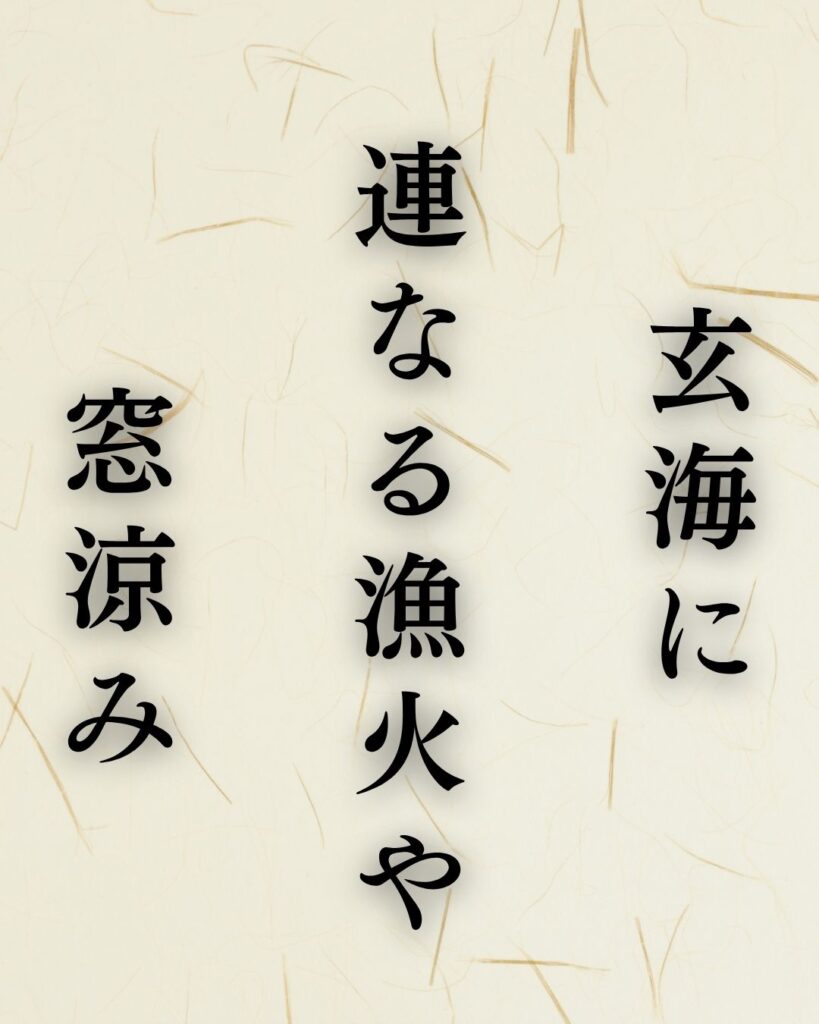 玄海に
連なる漁火や
窓涼み